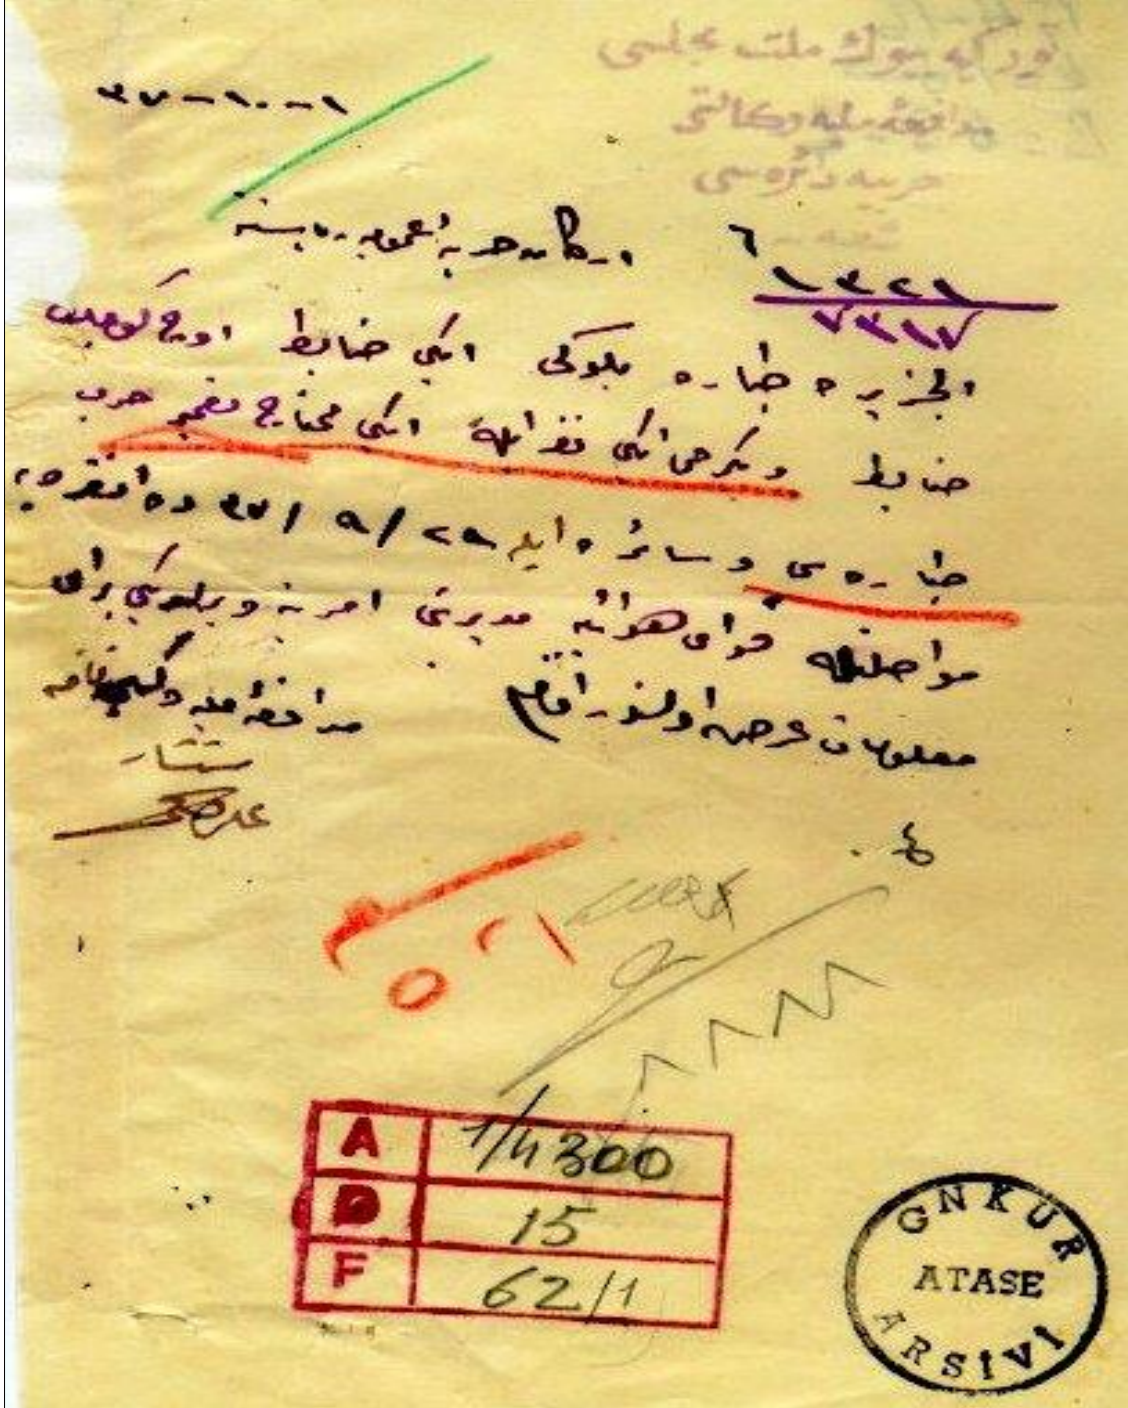 توركيه بيوك ملت مجلسى
مدافعۀ مليه وكالتى
حربيه دائره سى
٣٧-١٠-١
٦
اركان حربيۀ عموميه رياستنه
١٣٢١
٧٣١٧
الجزيره طياره بلوكى ايكى ضابط اوچ كوچك
ضابط و يكرمى ايكى نفر ايله ايكى محتاج تعمير حرب
طياره سى و سائره ايله ٢٩/٩/٣٧ ده انقره يه
مواصلتله قواى هوائيه مديريتى امرينه ويرلديكى براى
معلومات عرض اولنور افندم
مدافعۀ مليه وكيلى نامنه
مستشار
٣
٥٢١
A 1/4300
D 15
F 62/1
GNKUR
ATASE
ARŞİVİ